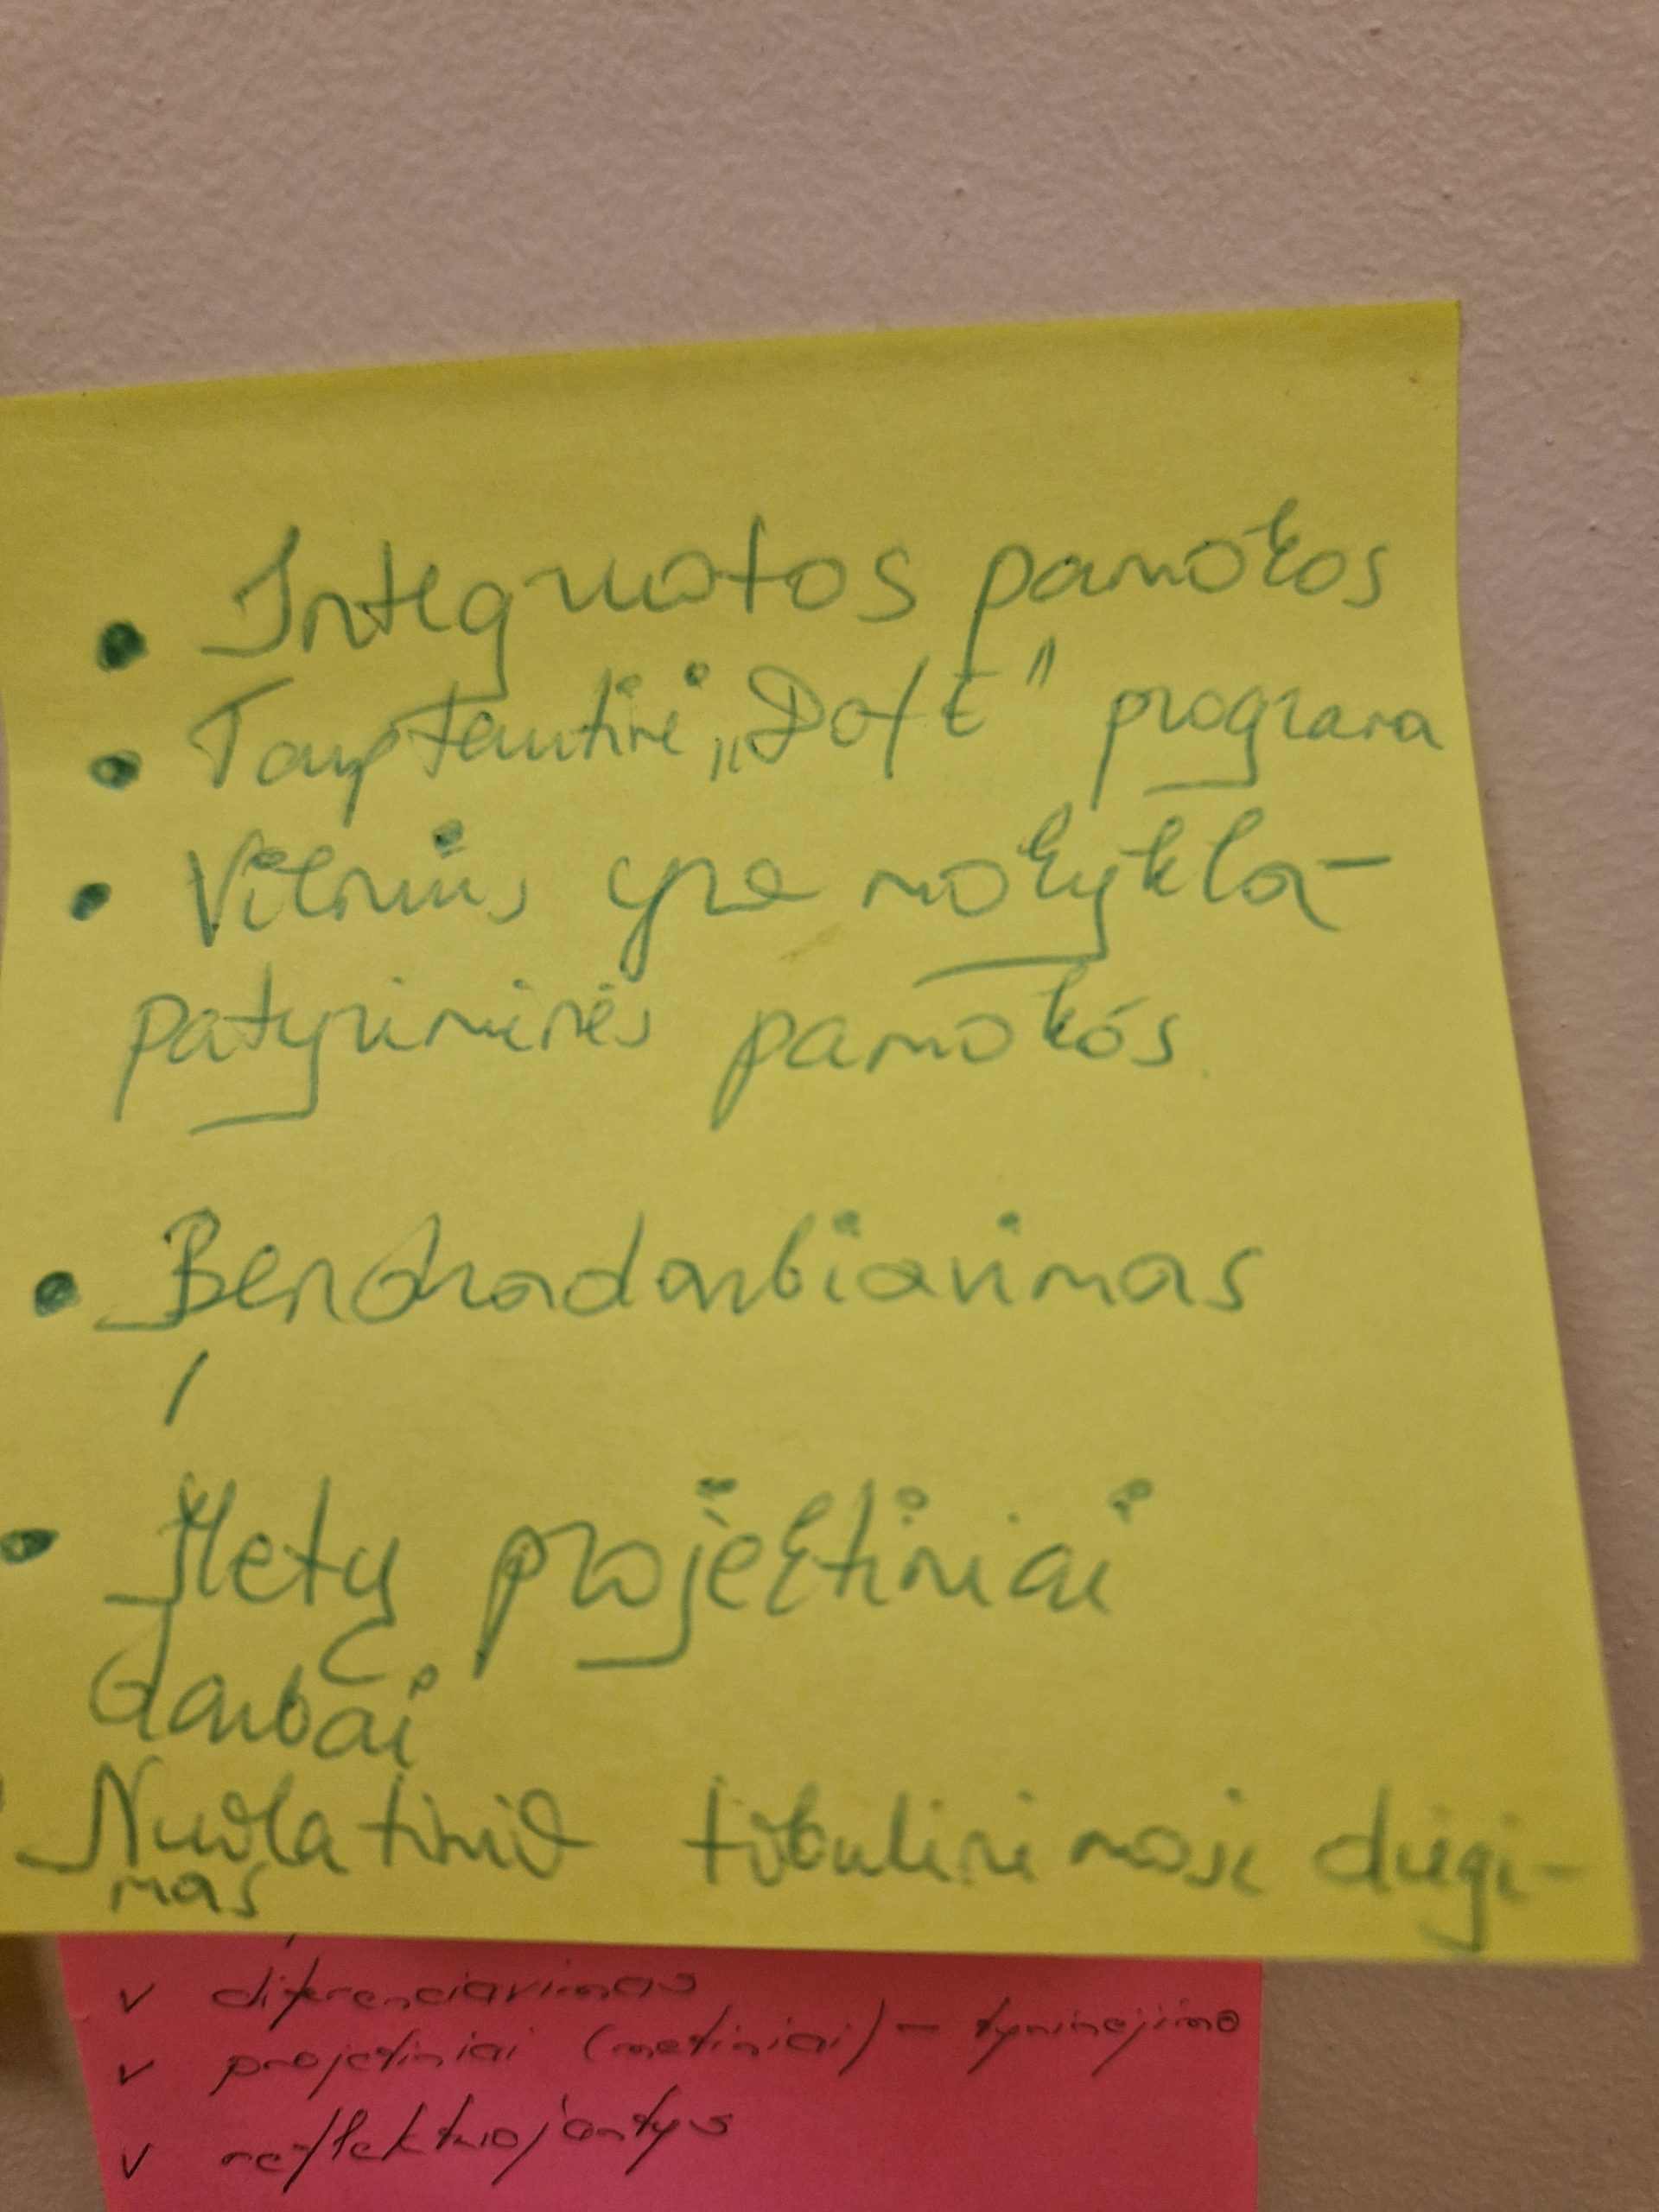 • Integruotos pamokos
• Tarptautinė „DofE" programa
• Vilnius yra mokykla -
patyriminės pamokos.
• Bendradarbiavimas
• Metų projektiniai
darbai
Nuolatinio tobulinimosi diegi-
mas
v diferenciavimas
v projetiniai (metiniai) - tyrinėjimo
v reflektuojantys